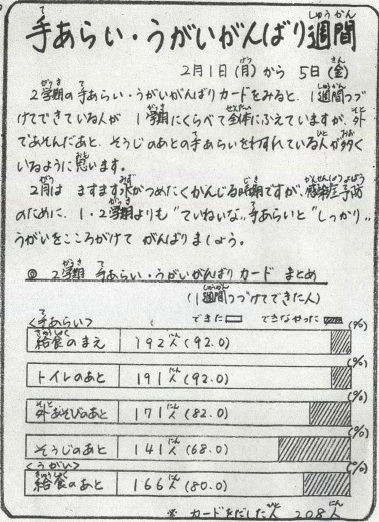 手あらい・うがいがんばり週間
しゅうかん
2月1日(月)から 5日(金)
2学期の手あらい・うがいがんばりカードをみると、1週間つづ
けてできている人が 1学期にくらべて全体にふえていますが、外
であそんだあと、そうじのあとの手あらいをわすれている人が多く
いるように思います。
2月は ますます水がつめたくかんじる時期ですが、感染症予防
のために、1・2学期よりも"ていねいな"手あらいと"しっかり"
うがいをこころがけて がんばりましょう。
◎ 2学期 手あらい・うがいがんばりカード まとめ
(1週間つづけてできた人)
<手あらい> できた できなかった (%)
給食のまえ 192人(92.0)
(%)
トイレのあと 191人(92.0)
(%)
外あそびのあと 171人(82.0)
(%)
そうじのあと 141人(68.0)
<うがい> (%)
給食のあと 166人(80.0)
※ カードをだした人 208人